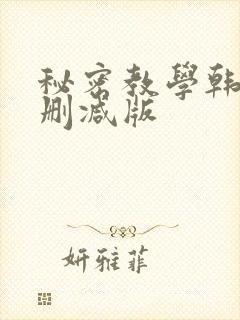 秘密教學韩
删减版
妍雅菲